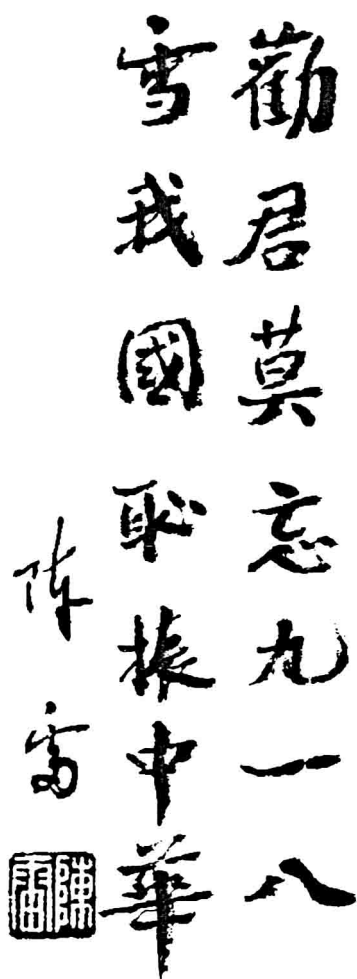 勸君莫忘九一八
雪我國恥振中華
陈雷
陳雷